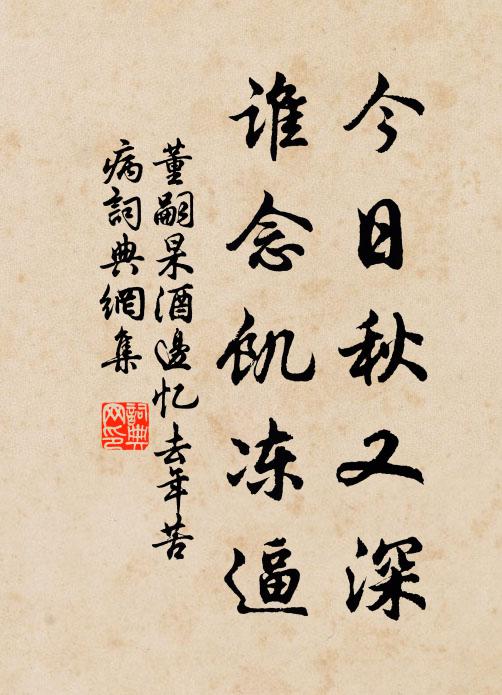 今日秋又深
谁念飢冻逼
董嗣杲酒邊忆去年苦
病詞典網集
詞典
网印